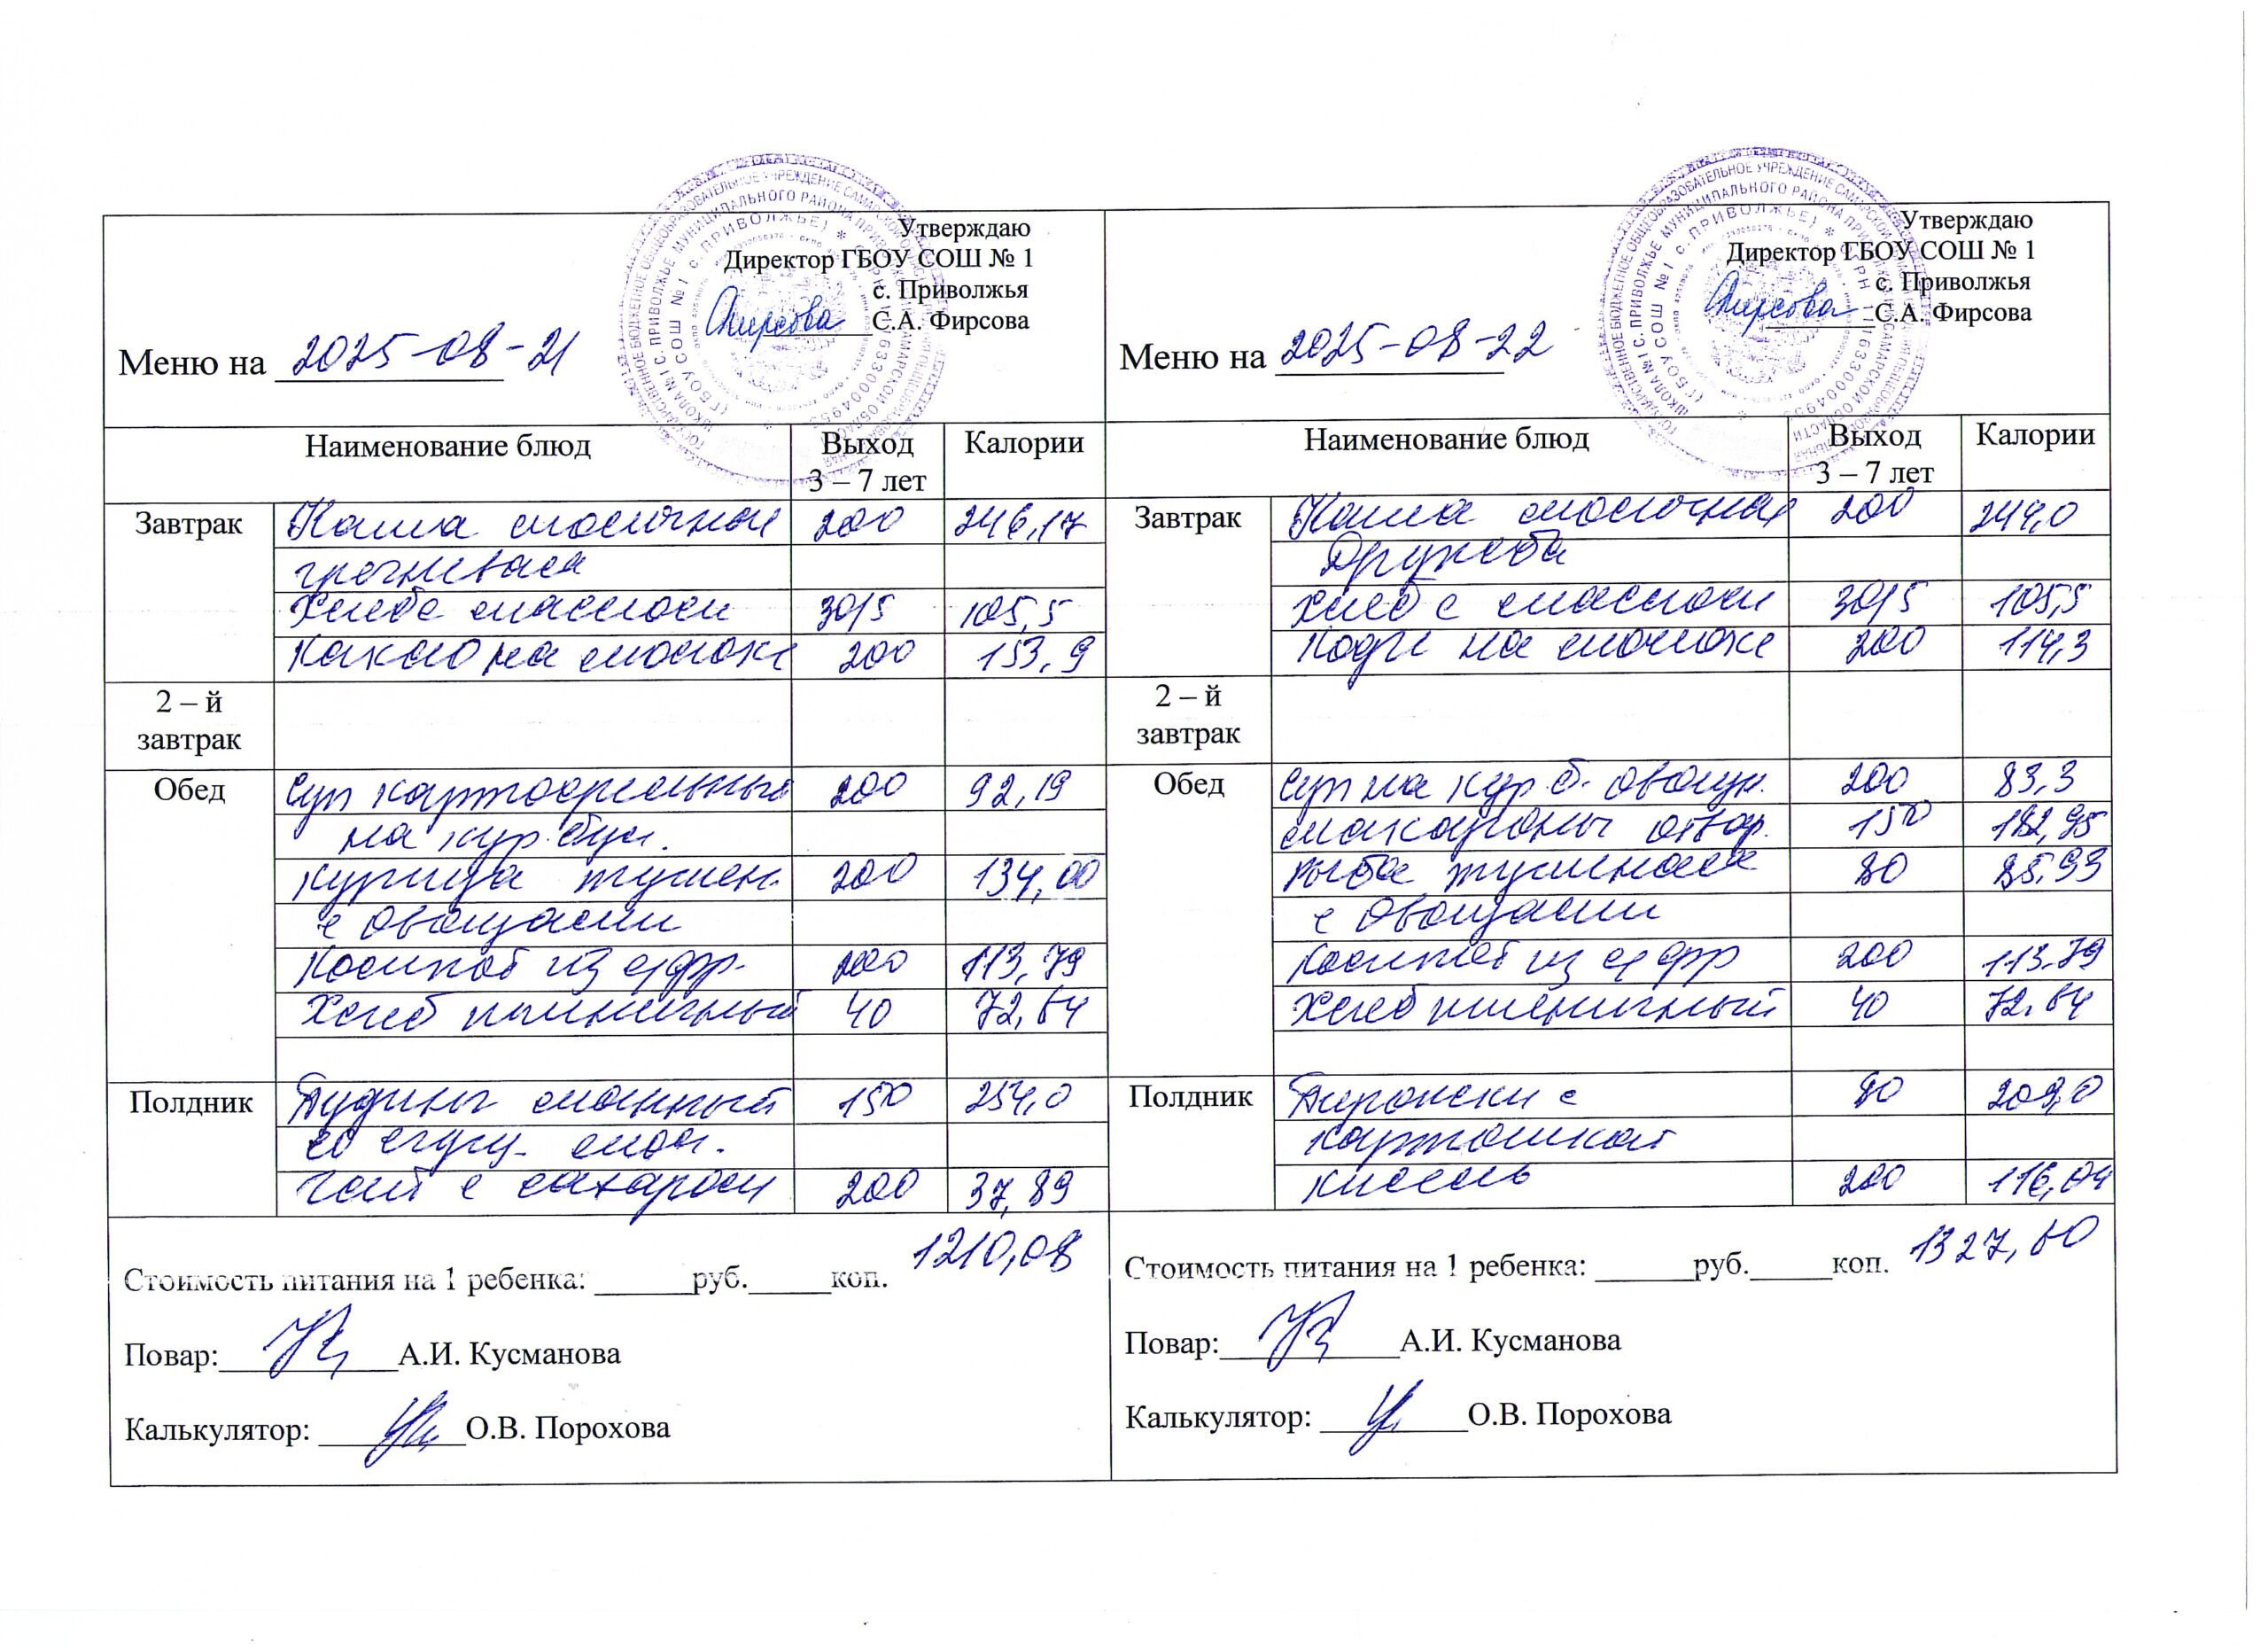 Утверждаю
Директор ГБОУ СОШ № 1
с. Приволжья
С.А. Фирсова
Меню на 2025-08-21
Наименование блюд Выход Калории
3 – 7 лет
Завтрак Каша молочная 200 246,17
гречневая
Хлеб с маслом 30/5 105,5
Какао на молоке 200 153,9
2 – й
завтрак
Обед Суп картофельный 200 92,19
на кур. бул.
Курица тушен. 200 134,00
с овощами
Компот из с/фр. 200 113,79
Хлеб пшеничный 40 72,64
Полдник Пудинг манный 150 254,0
со сгущ. мол.
Чай с сахаром 200 37,89
1210,08
Стоимость питания на 1 ребенка: ______руб._____коп.
Повар: А.И. Кусманова
Калькулятор: О.В. Порохова
Утверждаю
Директор ГБОУ СОШ № 1
с. Приволжья
С.А. Фирсова
Меню на 2025-08-22
Наименование блюд Выход Калории
3 – 7 лет
Завтрак Каша молочная 200 244,0
Дружба
Хлеб с маслом 30/5 105,5
Кофе на молоке 200 114,3
2 – й
завтрак
Обед Суп на кур. б. овощ. 200 83,3
макароны отвар. 150 182,95
рыба тушеная 80 85,93
с овощами
Компот из с/фр 200 113.79
Хлеб пшеничный 40 72.64
Полдник Пирожки с 80 209,0
картошкой
кисель 200 116,04
1327,60
Стоимость питания на 1 ребенка: ______руб._____коп.
Повар: А.И. Кусманова
Калькулятор: О.В. Порохова